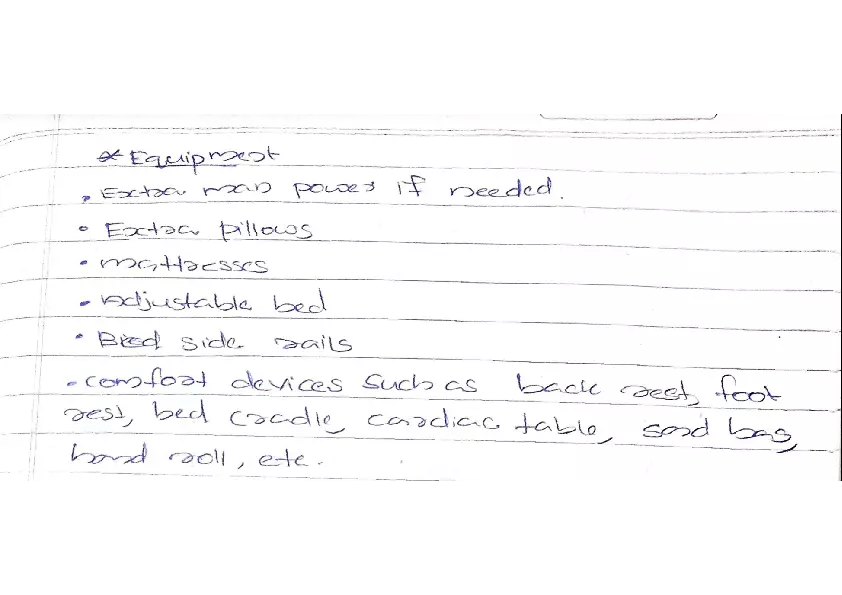 * Equipment
• Extra man power if needed.
• Extra pillows
• mattresses
• Adjustable bed
• Bed side rails
• comfort devices such as back rest, foot
rest, bed cradle, cardiac table, sand bag,
hand roll, etc.